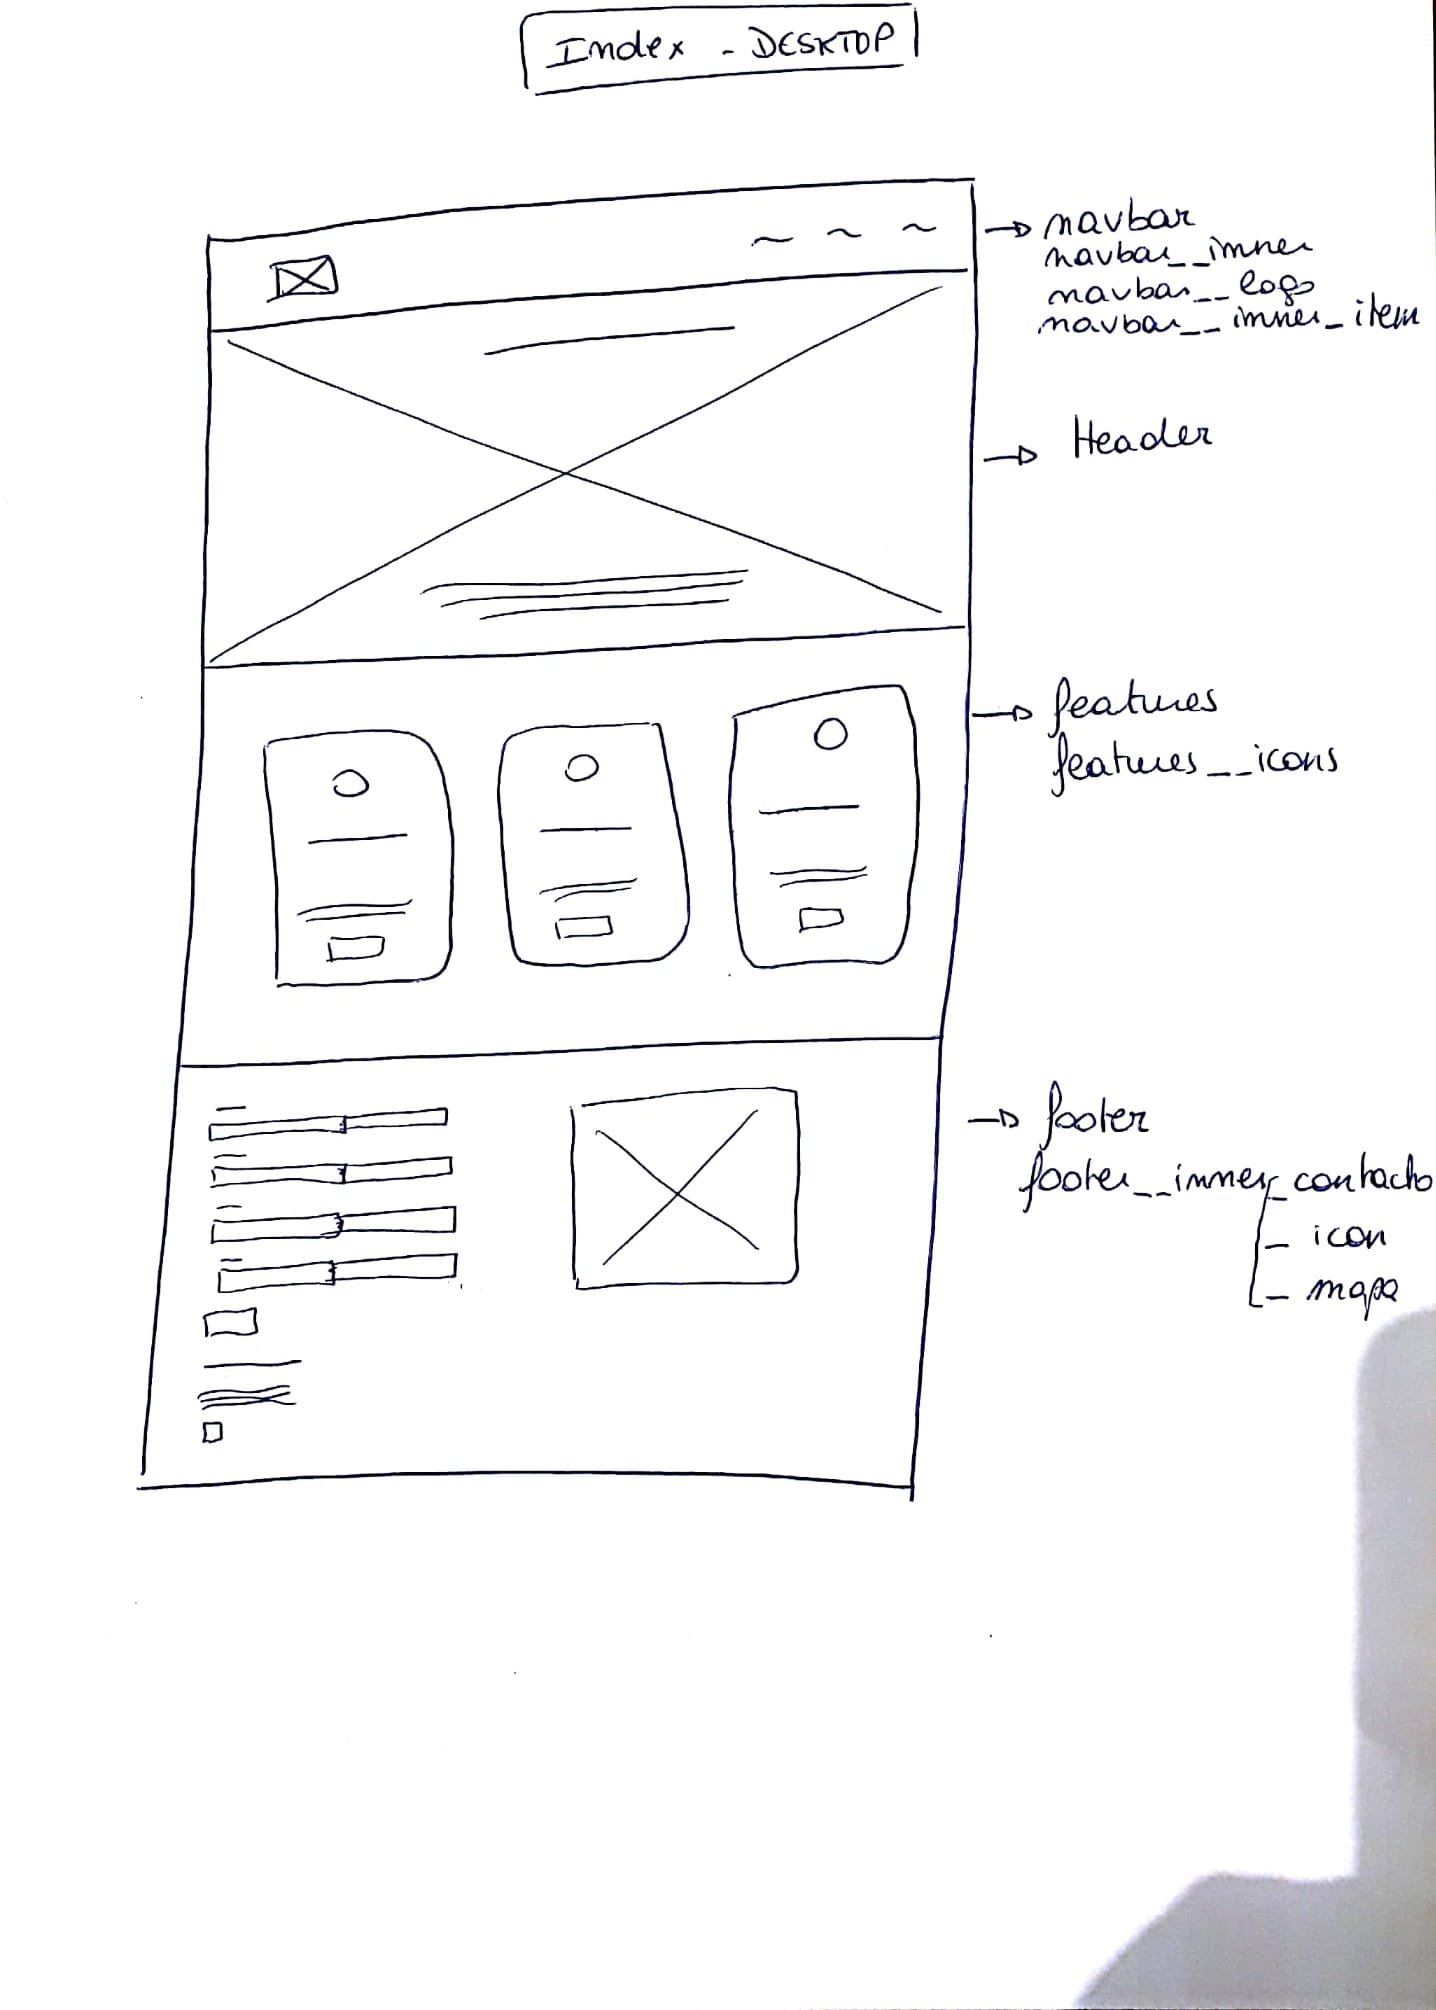 Index - DESKTOP
navbar
navbar__inner
navbar__logo
navbar__inner_item
Header
features
features__icons
footer
footer__inner_contacto
_ icon
_ mapa